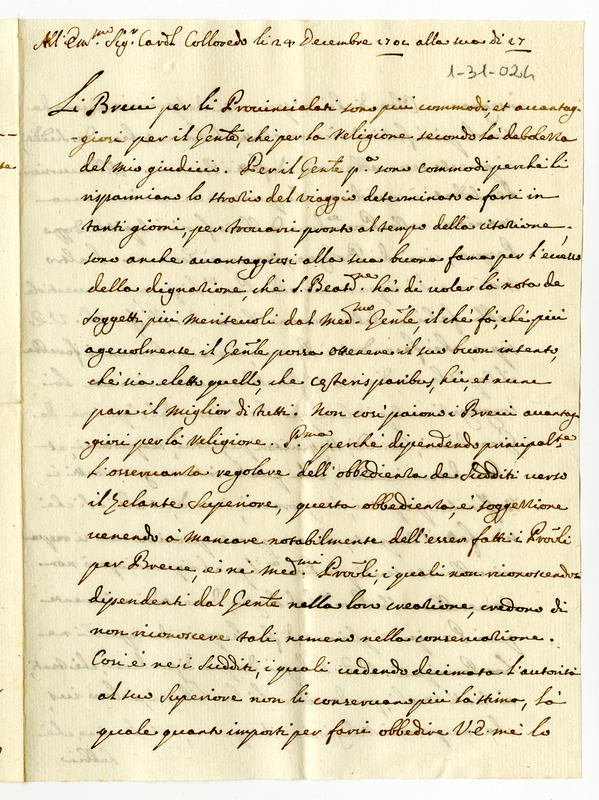 All' Em.mo Sig.r Card.l Colloredo li 24 Decembre 1702 alla sua di 27
1-31-024
Li Brevi per li Provincialati sono piu commodi, et avantag-
-giosi per il Gen̄te, che per la Religione secondo la debolezza
del mio giudicio. Per il Gen̄te p.a sono commodi perche li
risparmiano lo strazio del viaggio determinato a farsi in
tanti giorni, per trovarsi pronto al tempo della citazione,
sono anche avantaggiosi alla sua buona fama per l'eccesso
della dignazione, che S. Beat.ne há di voler la nota de
soggetti piú meritevoli dal med.mo Gen̄le, il ché fá, ché piú
agevolmente il Gen̄le possa ottenere il suo buon intento,
ché sia eletto quello, che cęteris paribus, hic, et nunc
pare il miglior di tutti. Non cosi paiono i Brevi avantag-
giosi per la Religione. P.ma perché dipendendo principal.te
l'osservanza regolare dell'obbedienza de Sudditi verso
il Zelante Superiore, questa obbedienza, e soggezzione
venendo á mancare notabilmente dell'esser fatti i Prōuli
per Breve, e ne med.mi Prōuli, i quali non riconoscendosi
dipendenti dal Gen̄te nella loro creazione, credono di
non riconoscere tali nemeno nella conservazione.
Cosi é ne i Sudditi, i quali vedendo decimata l'autoritá
al suo Superiore non li conservano piú la stima, la
quale quanto importi per farsi obbedire V. E. me lo